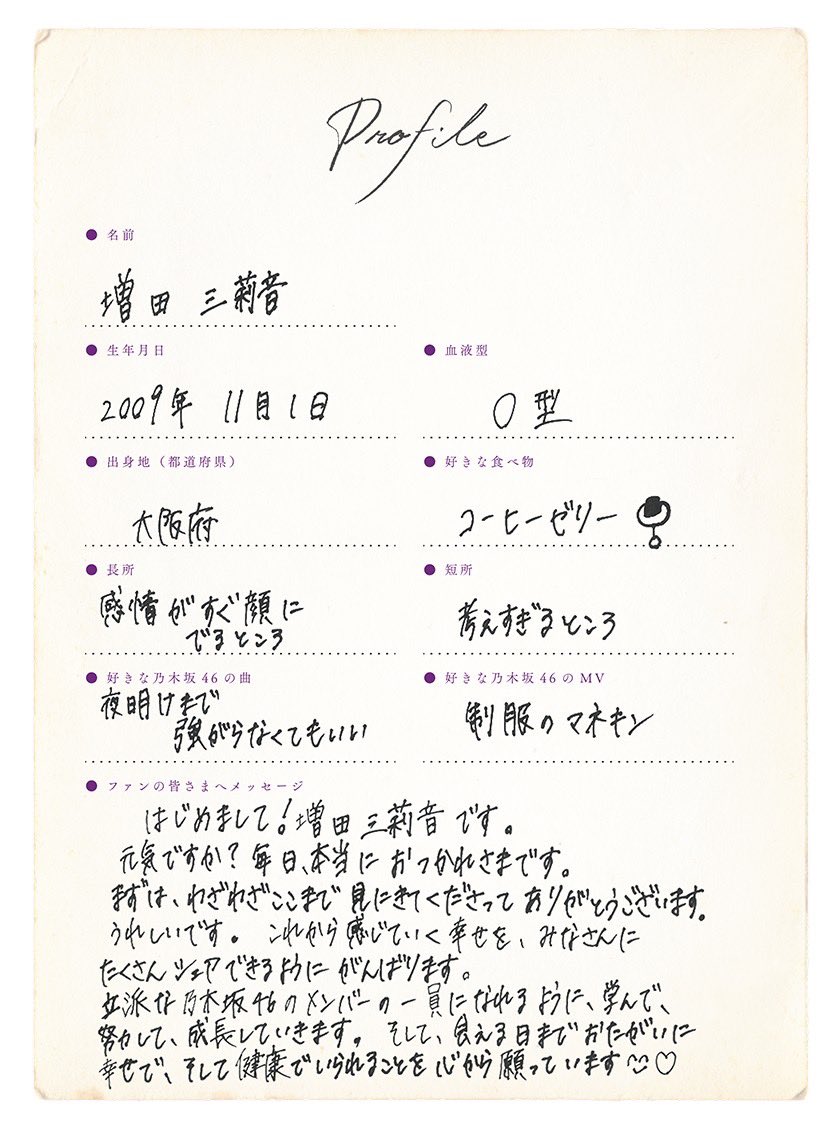 Profile
名前
増田 三莉音
生年月日
2009年 11月1日
血液型
O型
出身地（都道府県）
大阪府
好きな食べ物
コーヒーゼリー
長所
感情がすぐ顔に
でるところ
短所
考えすぎるところ
好きな乃木坂46の曲
夜明けまで
強がらなくてもいい
好きな乃木坂46のMV
制服のマネキン
ファンの皆さまへメッセージ
はじめまして!増田三莉音です。
元気ですか?毎日、本当におつかれさまです。
まずは、わざわざここまで見にきてくださってありがとうございます。
うれしいです。これから感じていく幸せを、みなさんに
たくさんシェアできるようにがんばります。
立派な乃木坂46のメンバーの一員になれるように、学んで、
努力して、成長していきます。そして、会える日までおたがいに
幸せで、そして健康でいられることを心から願っています